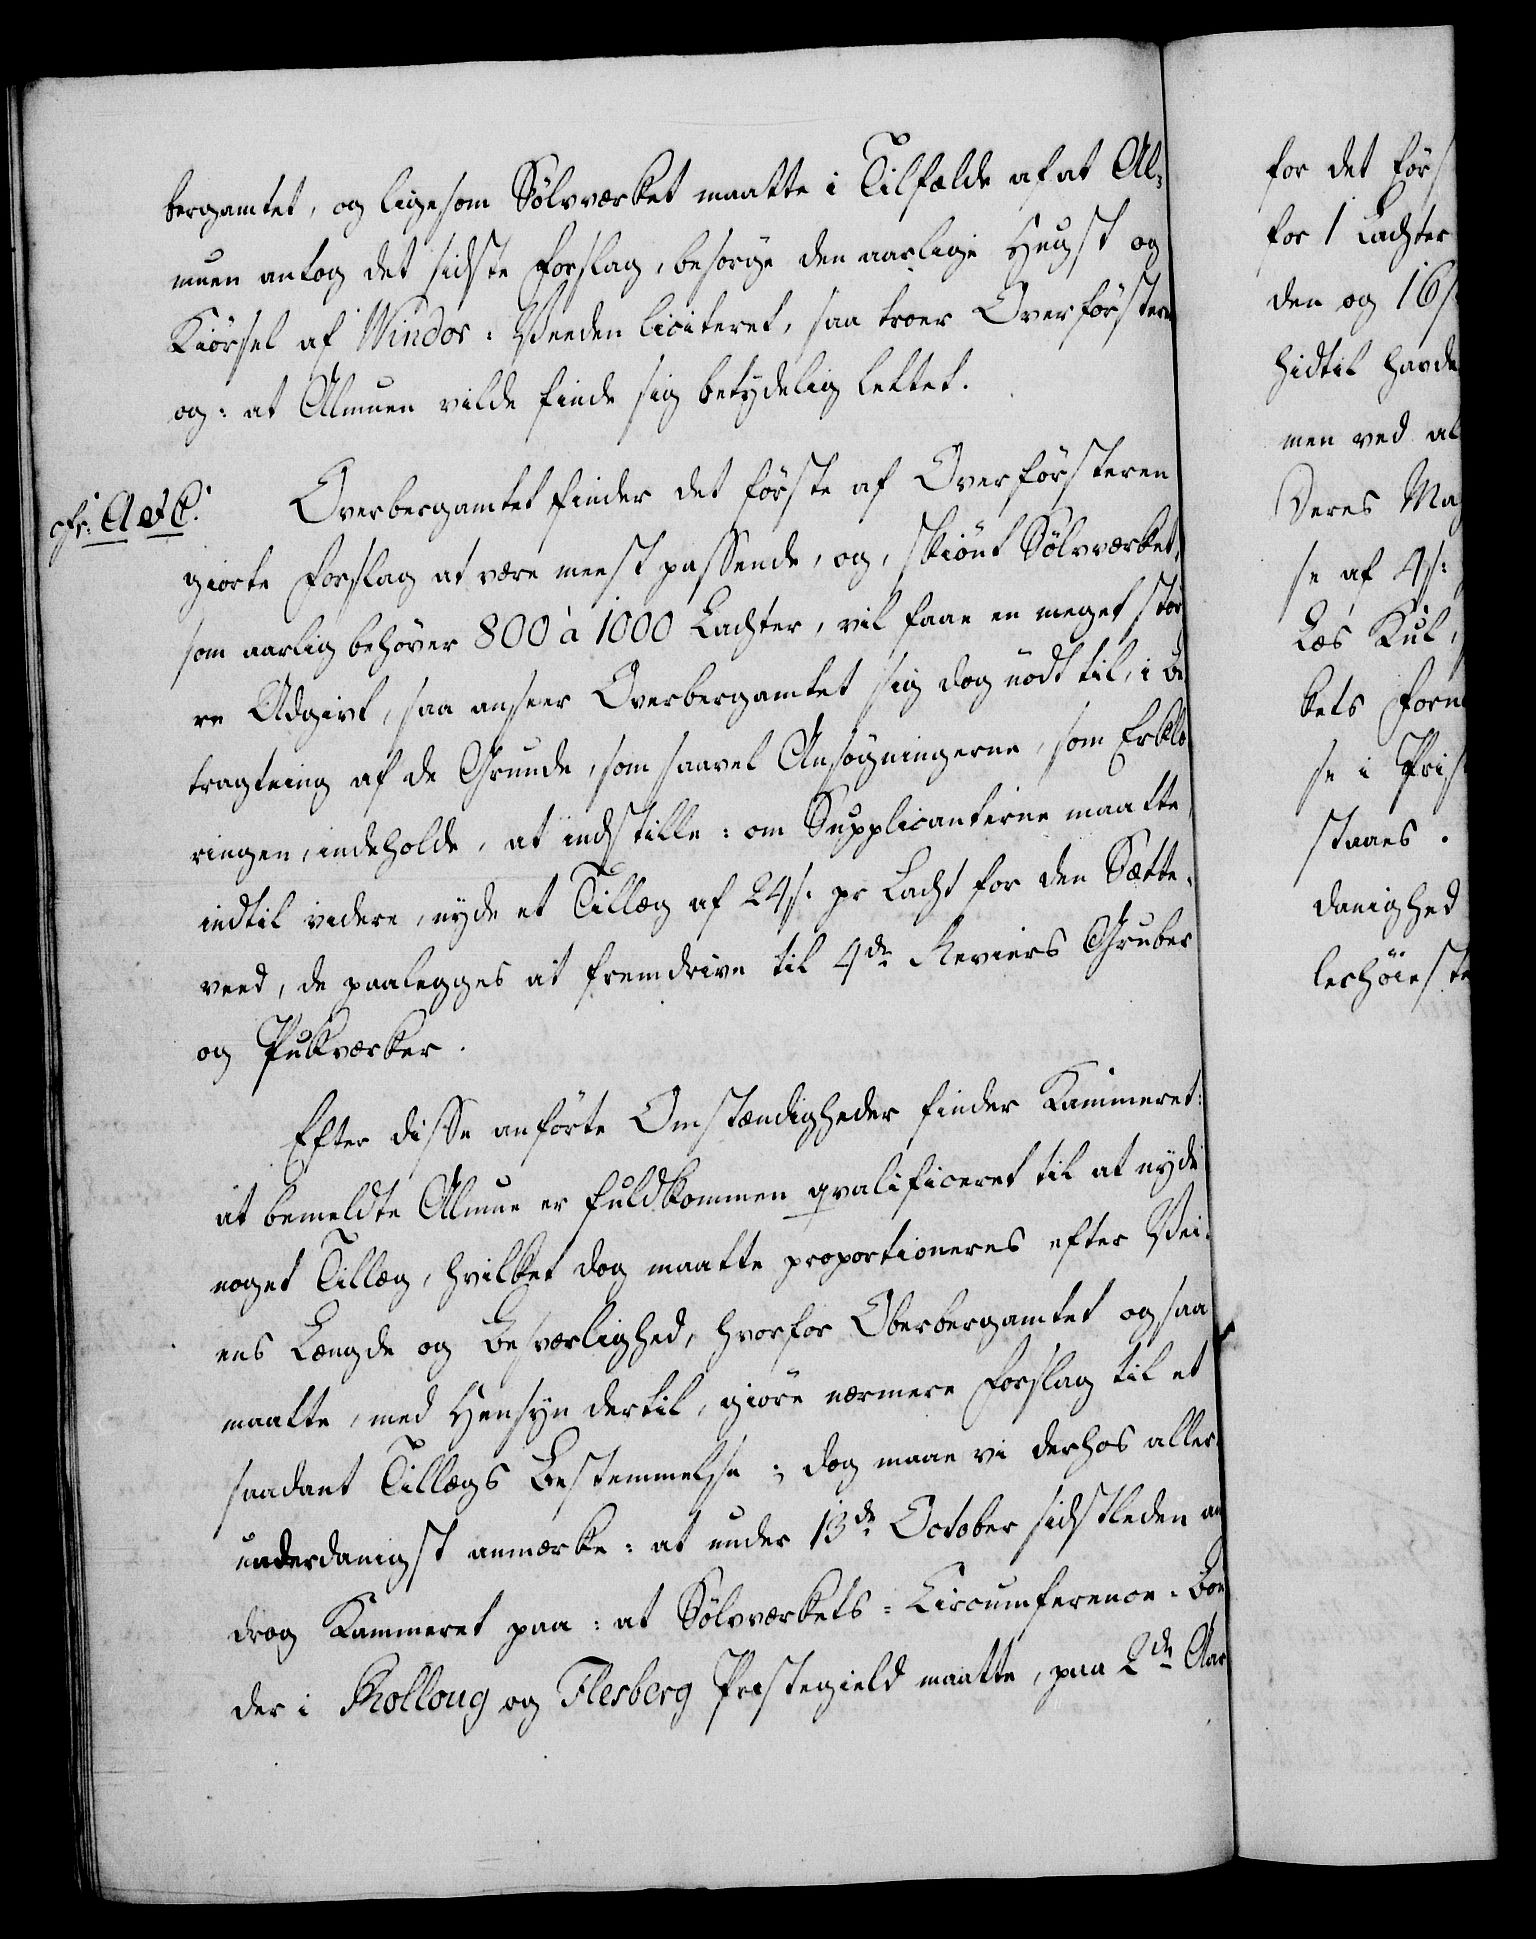 bergamtet, og ligesom Sølvværket maatte i Tilfælde af at Al-
muen antog det sidste Forslag, besørge den aarlige Hugst og
Kiörsel af Windor-Veeden liciteret, saa troer Overförsteren
og: at Almuen vilde finde sig betydelig lettet.
cfr: A et C.
Overbergamtet finder det förste af Overförsteren
giorte Forslag at være meest passende, og, skiönt Sølvværket,
som aarlig behöver 800 à 1000 Lachter, vil faae en meget stör
re Udgivt, saa anseer Overbergamtet sig dog nödt til, i Be
tragtning af de Grunde, som saavel Ansögningerne, som Erklæ
ringen, indeholde, at indstille: om Supplicanterne maatte,
indtil videre, nyde et Tillæg af 24 s. pr Lacht for den Sætte-
veed, de paalegges at fremdrive til 4de Reviers Gruber
og Pukværker.
Efter disse anförte Omstændigheder finder Kammeret:
at bemeldte Almue er fuldkommen qvalificeret til at nyde
noget Tillæg, hvilket dog maatte proportioneres efter Vei-
ens Længde og Besværlighed, hvorfor Oberbergamtet ogsaa
maatte, med Hensyn dertil, giöre nærmere Forslag til et
saadant Tillægs Bestemmelse; dog maae vi derhos aller-
underdanigst anmærke: at under 13de October sidstleden an
drog Kammeret paa: at Sølvværkets-Circumference-Bön
der i Rolloug og Flesberg Præstegield maatte, paa 2de Aar
for det förs
for 1 Lachter
den og 16 s.
hidtil havde
men ved al
Deres Maj
se af 4 s:
Læs Kul,
kets Forn
se i Pris
staaes.
danighed
lerhöieste